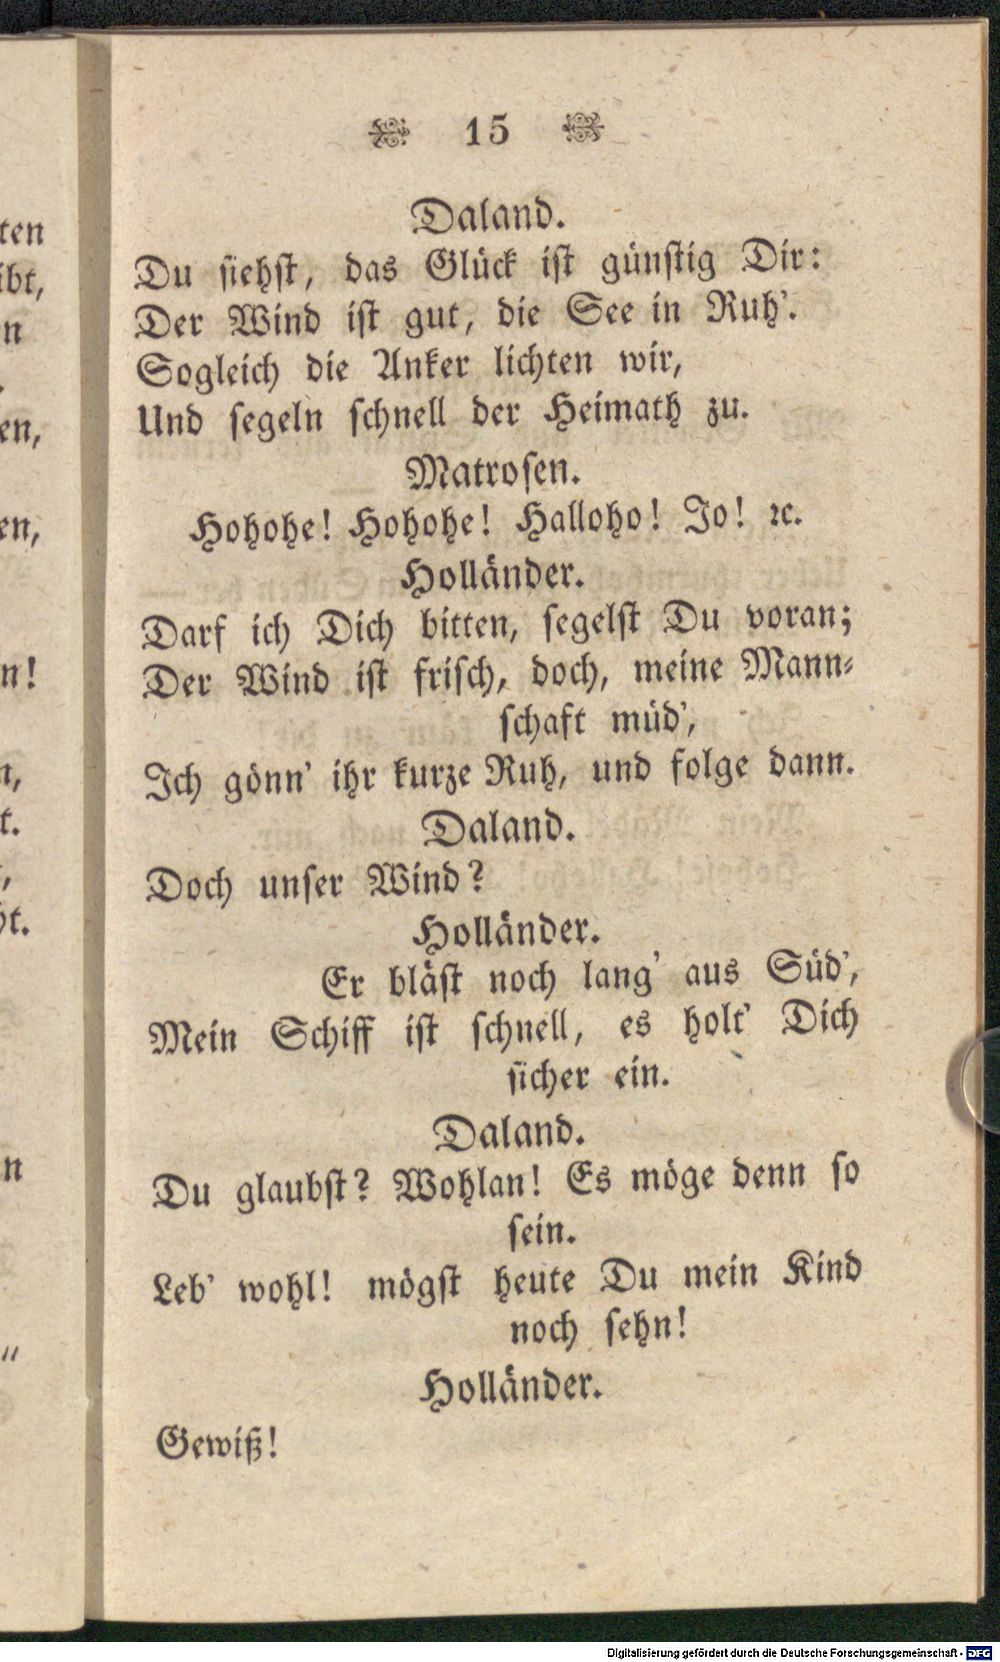 15
Daland.
Du siehst, das Glück ist günstig Dir:
Der Wind ist gut, die See in Ruh'.
Sogleich die Anker lichten wir,
Und segeln schnell der Heimath zu.
Matrosen.
Hohohe! Hohohe! Halloho! Jo! ꝛc.
Holländer.
Darf ich Dich bitten, segelst Du voran;
Der Wind ist frisch, doch, meine Mann-
schaft müd',
Ich gönn' ihr kurze Ruh, und folge dann.
Daland.
Doch unser Wind?
Holländer.
Er bläst noch lang' aus Süd',
Mein Schiff ist schnell, es holt' Dich
sicher ein.
Daland.
Du glaubst? Wohlan! Es möge denn so
sein.
Leb' wohl! mögst heute Du mein Kind
noch sehn!
Holländer.
Gewiß!
Digitalisierung gefördert durch die Deutsche Forschungsgemeinschaft - DFG